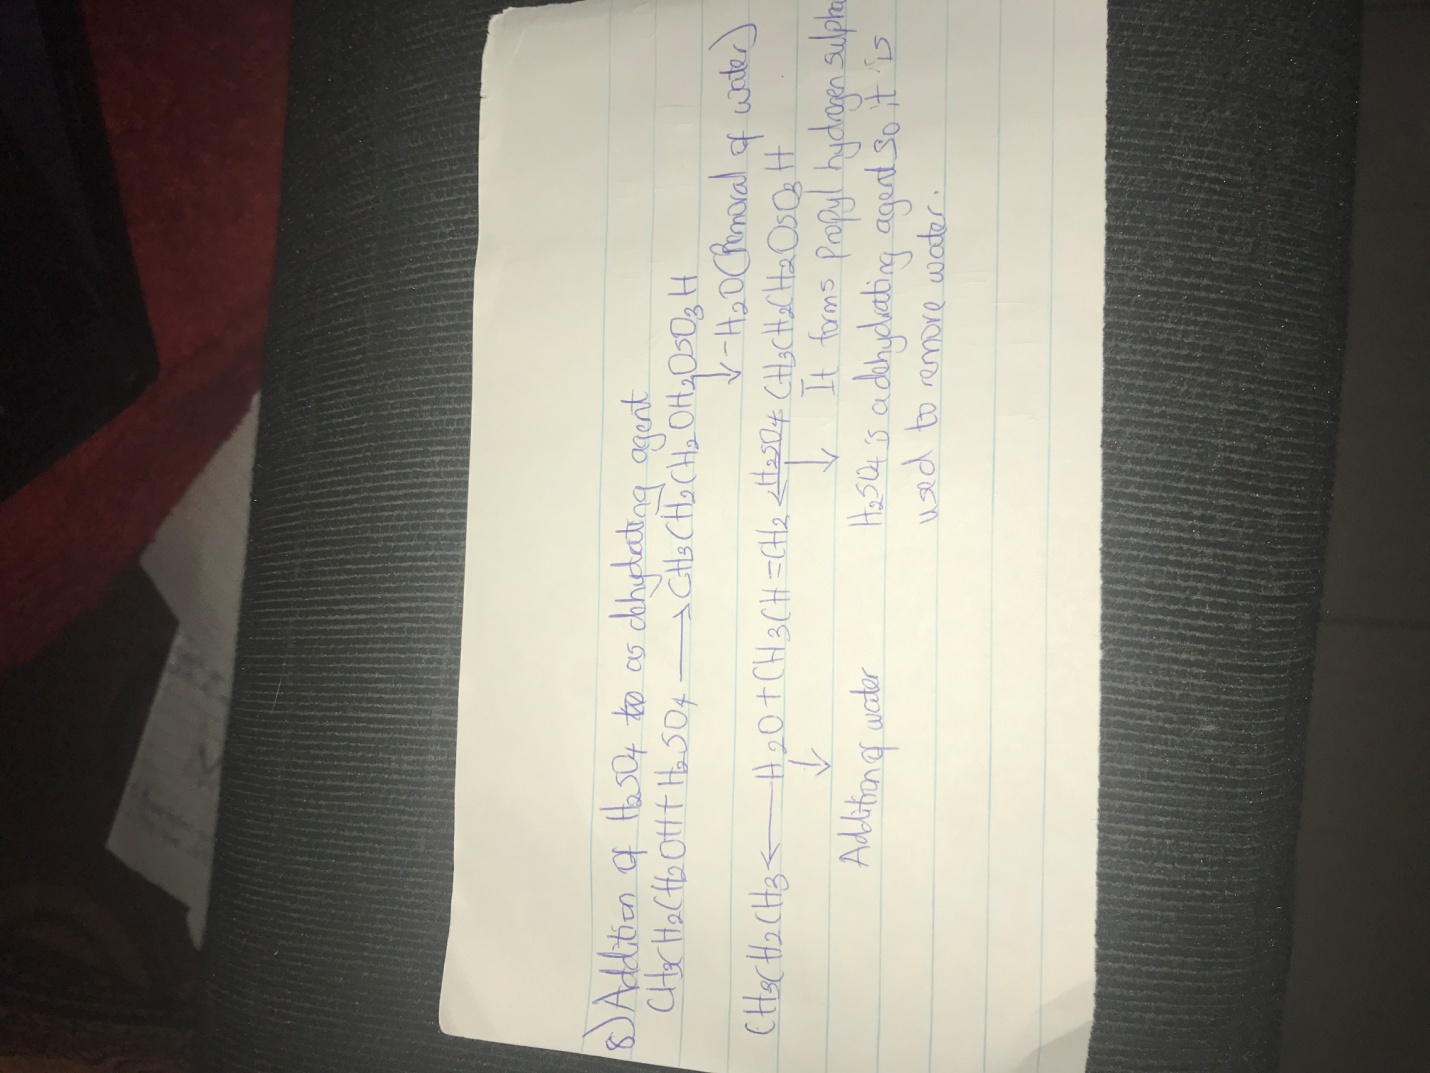 8) Addition of H₂SO₄ to as dehydrating agent
CH₃CH₂CH₂OH + H₂SO₄ → CH₃CH₂CH₂OH₂OSO₃H
↓ -H₂O (Removal of water)
CH₃CH₂CH₃ ← H₂O + CH₃CH=CH₂ ← H₂SO₄ CH₃CH₂CH₂OSO₃H
↓ ↓ It forms propyl hydrogen
Addition of water H₂SO₄ is a dehydrating agent so it is
used to remove water.